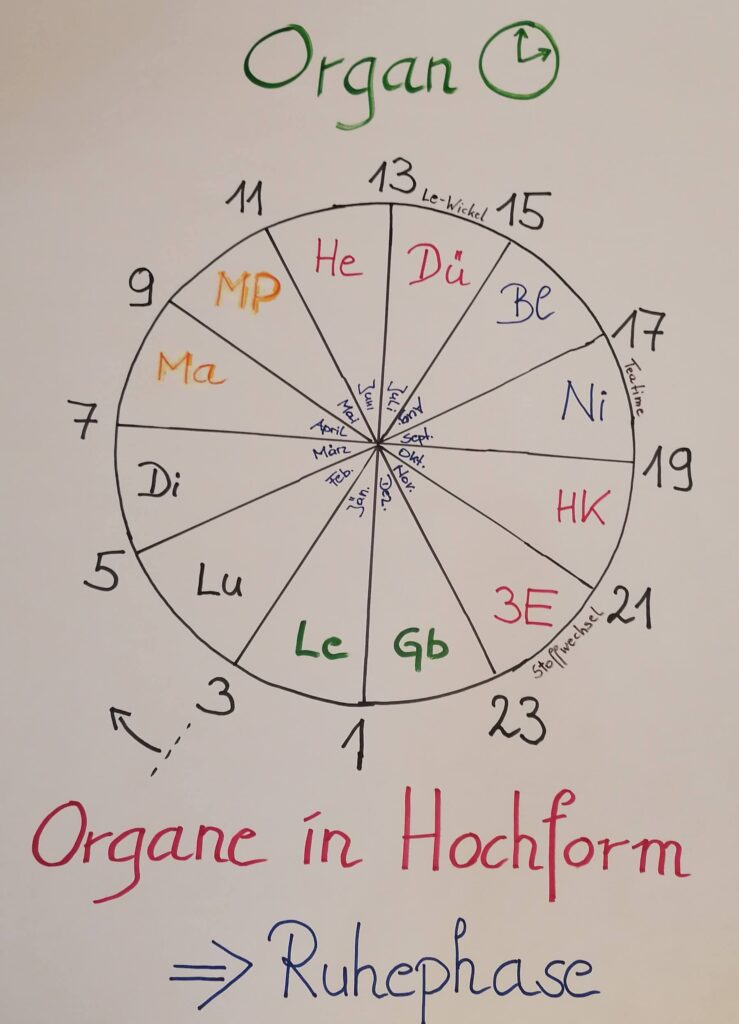 Organ
13
Le-Wickel
15
17
Teatime
19
21
Stoffwechsel
23
1
3
5
7
9
11
He
Dü
Bl
Ni
HK
3E
Gb
Le
Lu
Di
Ma
MP
Juni
Juli
Aug.
Sept.
Okt.
Nov.
Dez.
Jän.
Feb.
März
April
Mai
Organe in Hochform
⇒ Ruhephase